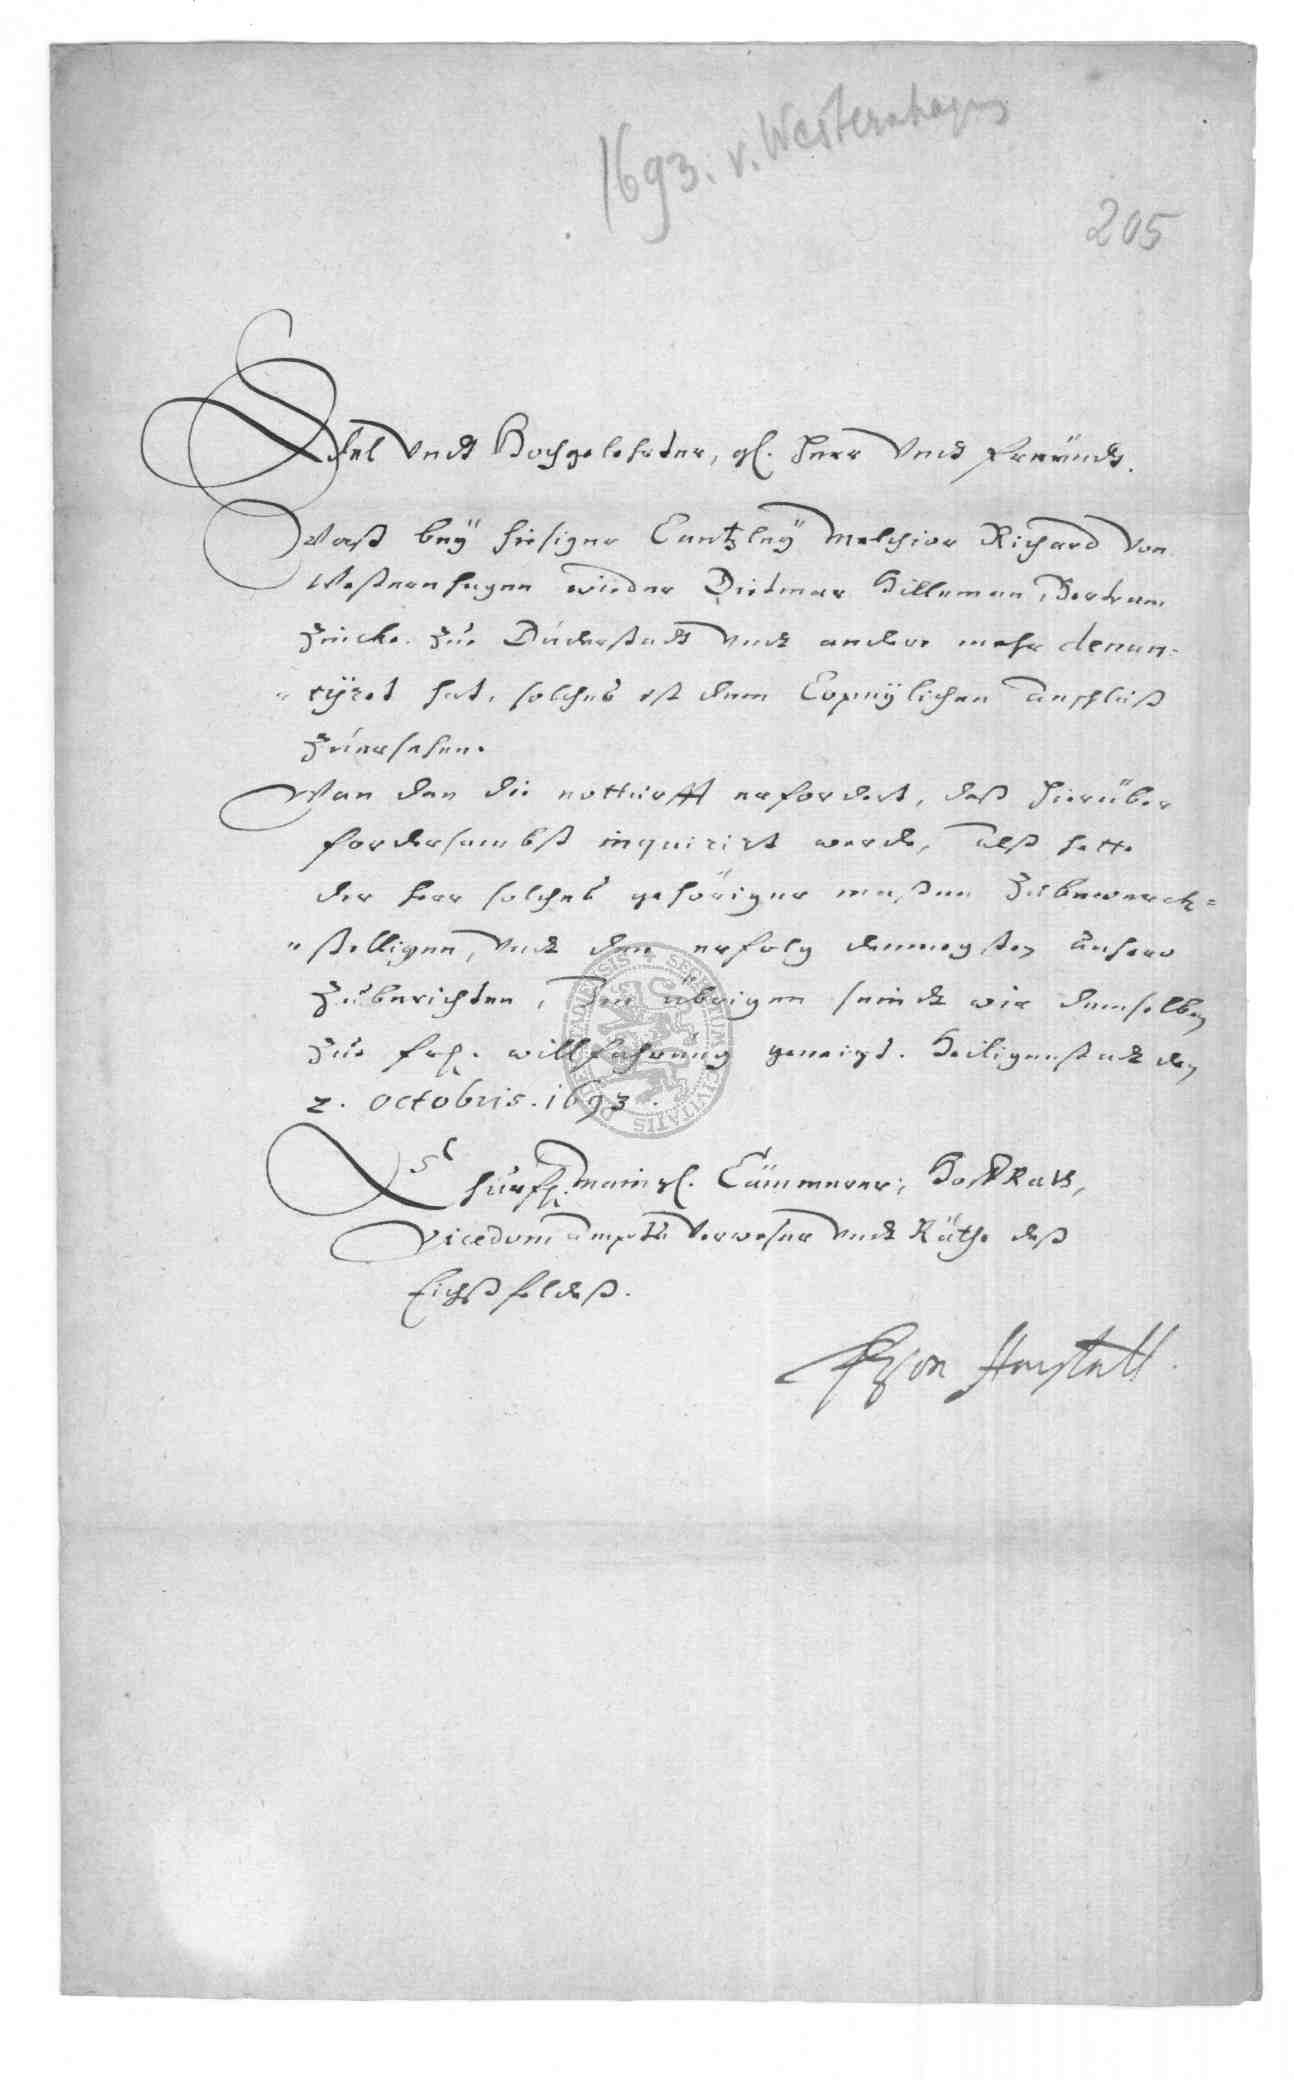 1693. v. Westernhagen
205
Edel undt Hochgelehrter, gl. Herr undt Freündt.
Waß beÿ hiesiger Cantzleÿ Melchior Richard von
Westernhagen wieder Dietmar Hilleman, Bertram
Zincke zue Dúderstadt undt andere mehr denun-
"cÿret hat, solches ist dem Copeÿlichen Anschluß
zúersehen.
Wan dan die notturfft erfordert, daß hierüber
fordersambst inquirirt werde, Alß hette
der Herr solches gehöriger maßen zu bewerck=
"stelligen, undt den erfolg demnegsten anhero
zuberichten, Im übrigen seindt wir demselben
zue frl. willfahrung geneigt. Heiligenstadt den
2. octobris. 1693.
Churfl. Maintzl. Cämmerer, HoffRath,
Vicedom Ampts Verweser undt Räthe deß
Eichßfeldeß.
von Harstall
SECRETUM CIVITATIS DUDERSTADIENSIS